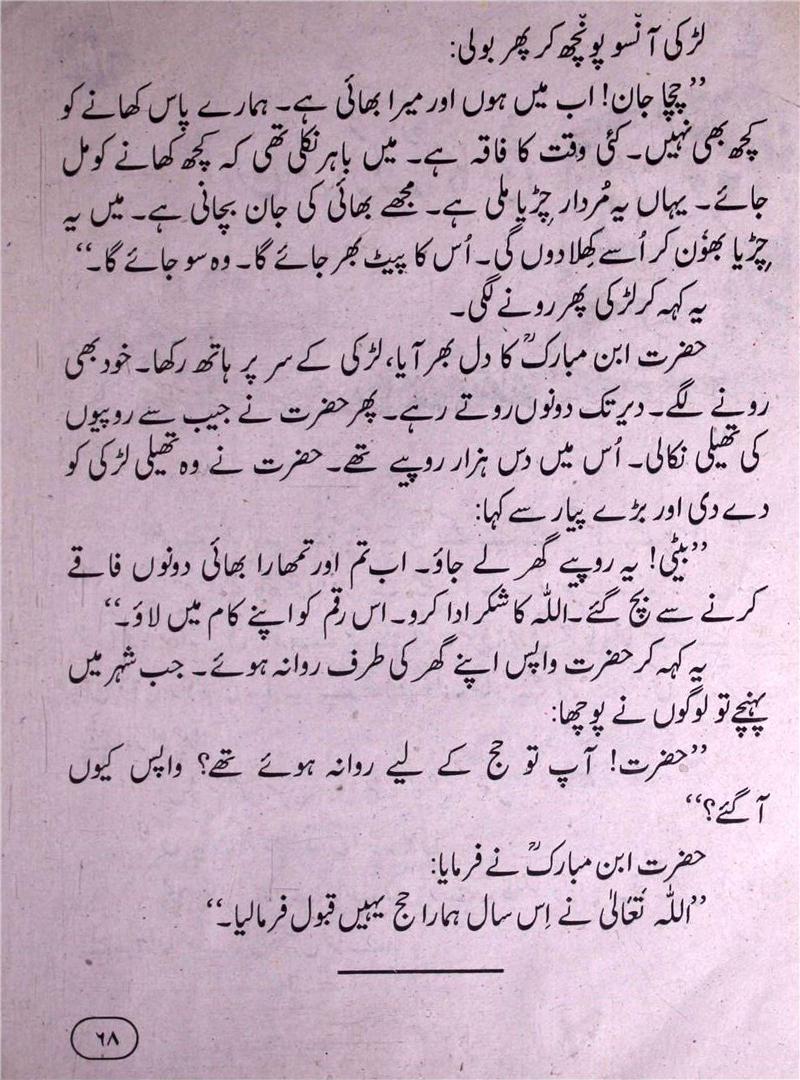 لڑکی آنسو پونچھ کر پھر بولی:
”چچا جان! اب میں ہوں اور میرا بھائی ہے۔ ہمارے پاس کھانے کو
کچھ بھی نہیں۔ کئی وقت کا فاقہ ہے۔ میں باہر نکلی تھی کہ کچھ کھانے کو مل
جائے۔ یہاں یہ مُردار چِڑیا ملی ہے۔ مجھے بھائی کی جان بچانی ہے۔ میں یہ
چِڑیا بھوٗن کر اُسے کِھلا دوں گی۔ اُس کا پیٹ بھر جائے گا۔ وہ سو جائے گا۔“
یہ کہہ کر لڑکی پھر رونے لگی۔
حضرت ابن مبارکؒ کا دل بھر آیا، لڑکی کے سر پر ہاتھ رکھا۔ خود بھی
رونے لگے۔ دیر تک دونوں روتے رہے۔ پھر حضرت نے جیب سے روپیوں
کی تھیلی نکالی۔ اُس میں دس ہزار روپیے تھے۔ حضرت نے وہ تھیلی لڑکی کو
دے دی اور بڑے پیار سے کہا:
”بیٹی! یہ روپیے گھر لے جاؤ۔ اب تم اور تمھارا بھائی دونوں فاقے
کرنے سے بچ گئے۔ اللہ کا شکر ادا کرو۔ اس رقم کو اپنے کام میں لاؤ۔“
یہ کہہ کر حضرت واپس اپنے گھر کی طرف روانہ ہوئے۔ جب شہر میں
پہنچے تو لوگوں نے پوچھا:
”حضرت! آپ تو حج کے لیے روانہ ہوئے تھے؟ واپس کیوں
آ گئے؟“
حضرت ابن مبارکؒ نے فرمایا:
”اللہ تَعَالیٰ نے اِس سال ہمارا حج یہیں قبول فرمالیا۔“
۶۸